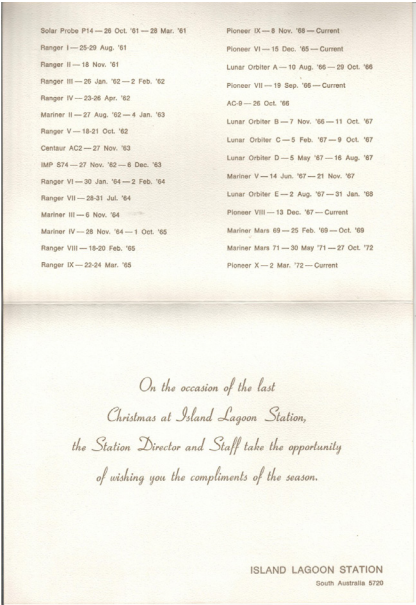 Solar Probe P14 — 26 Oct. '61 — 28 Mar. '61
Ranger I — 25-29 Aug. '61
Ranger II — 18 Nov. '61
Ranger III — 26 Jan. '62 — 2 Feb. '62
Ranger IV — 23-26 Apr. '62
Mariner II — 27 Aug. '62 — 4 Jan. '63
Ranger V — 18-21 Oct. '62
Centaur AC2 — 27 Nov. '63
IMP S74 — 27 Nov. '62 — 6 Dec. '63
Ranger VI — 30 Jan. '64 — 2 Feb. '64
Ranger VII — 28-31 Jul. '64
Mariner III — 6 Nov. '64
Mariner IV — 28 Nov. '64 — 1 Oct. '65
Ranger VIII — 18-20 Feb. '65
Ranger IX — 22-24 Mar. '65
Pioneer IX — 8 Nov. '68 — Current
Pioneer VI — 15 Dec. '65 — Current
Lunar Orbiter A — 10 Aug. '66 — 29 Oct. '66
Pioneer VII — 19 Sep. '66 — Current
AC-9 — 26 Oct. '66
Lunar Orbiter B — 7 Nov. '66 — 11 Oct. '67
Lunar Orbiter C — 5 Feb. '67 — 9 Oct. '67
Lunar Orbiter D — 5 May '67 — 16 Aug. '67
Mariner V — 14 Jun. '67 — 21 Nov. '67
Lunar Orbiter E — 2 Aug. '67 — 31 Jan. '68
Pioneer VIII — 13 Dec. '67 — Current
Mariner Mars 69 — 25 Feb. '69 — Oct. '69
Mariner Mars 71 — 30 May '71 — 27 Oct. '72
Pioneer X — 2 Mar. '72 — Current
On the occasion of the last
Christmas at Island Lagoon Station,
the Station Director and Staff take the opportunity
of wishing you the compliments of the season.
ISLAND LAGOON STATION
South Australia 5720